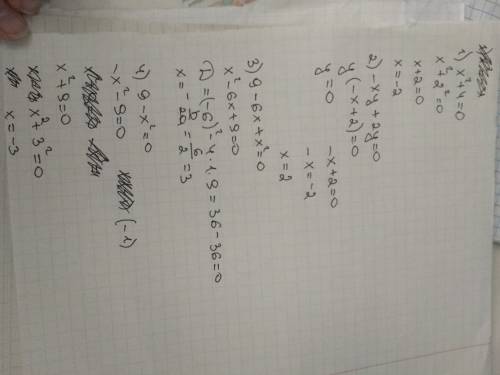 1) x² + 4 = 0
x² + 2² = 0
x + 2 = 0
x = -2
2) -xy + 2y = 0
y(-x + 2) = 0
y = 0 -x + 2 = 0
-x = -2
x = 2
3) 9 - 6x + x² = 0
x² - 6x + 9 = 0
D = (-6)² - 4 · 1 · 9 = 36 - 36 = 0
x = -b/2a = 6/2 = 3
4) 9 - x² = 0
-x² - 9 = 0 (-1)
x² + 9 = 0
x² + 3² = 0
x = -3